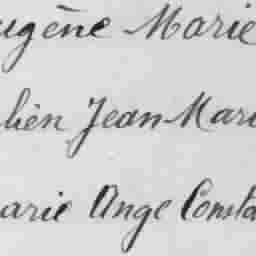 ugène Marie
lien Jean-Mari
arie Ange Consta